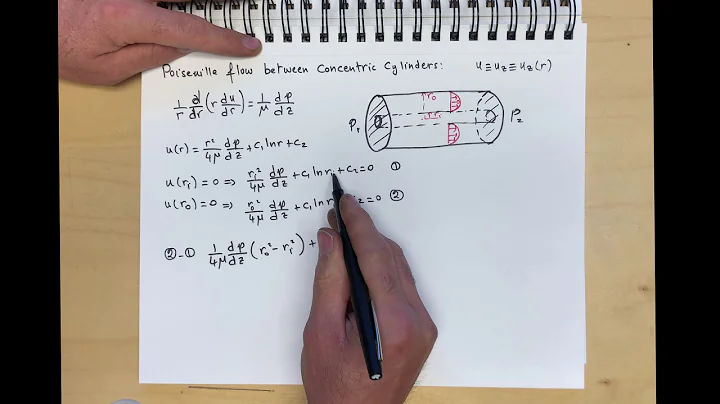 Poiseuille flow between Concentric Cylinders: u ≡ u_z ≡ u_z(r)
1/r d/dr (r du/dr) = 1/μ dp/dz
r_o
r_i
P_1
P_2
u(r) = r²/4μ dp/dz + c_1 ln r + c_2
u(r_i) = 0 ⇒ r_i²/4μ dp/dz + c_1 ln r_i + c_2 = 0 ①
u(r_o) = 0 ⇒ r_o²/4μ dp/dz + c_1 ln r 2 = 0 ②
② - ① 1/4μ dp/dz (r_o² - r_i²) +